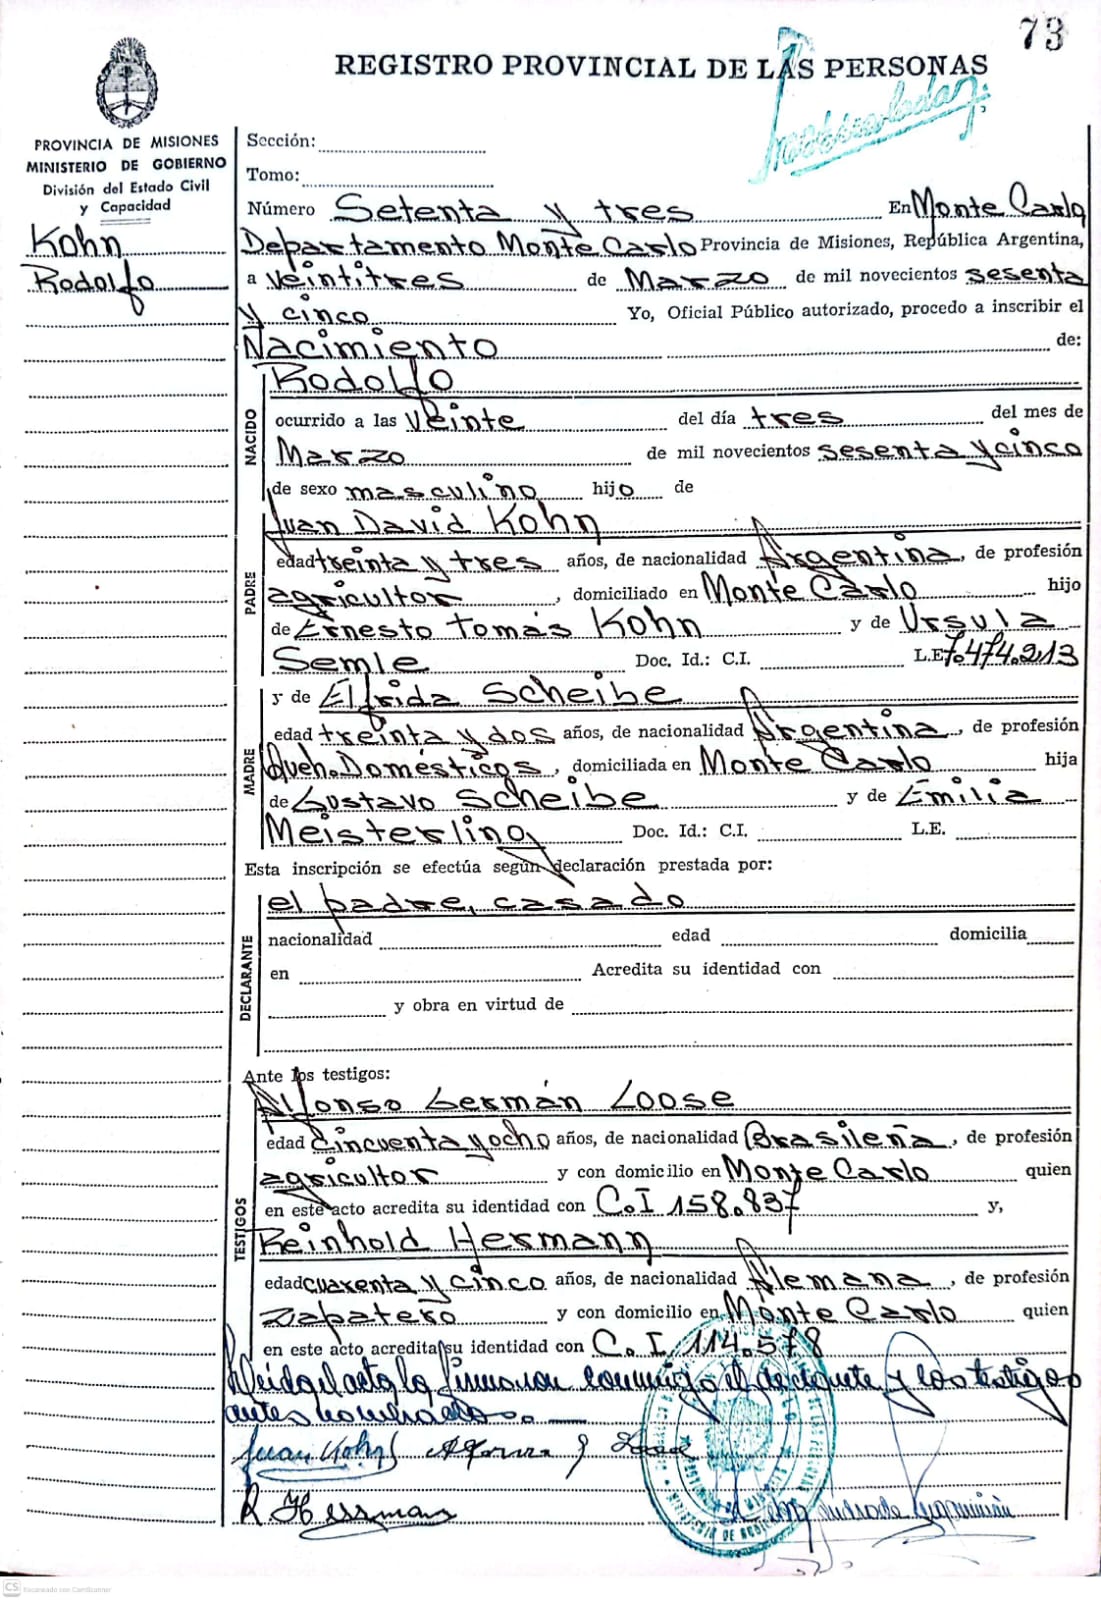 73
REGISTRO PROVINCIAL DE LAS PERSONAS
PROVINCIA DE MISIONES
MINISTERIO DE GOBIERNO
División del Estado Civil
y Capacidad
Kohn
Rodolfo
Sección:
Tomo:
Número Setenta y tres En Monte Carlo
Departamento Monte Carlo Provincia de Misiones, República Argentina,
a veintitres de Marzo de mil novecientos sesenta
y cinco Yo, Oficial Público autorizado, procedo a inscribir el
Nacimiento de:
NACIDO
Rodolfo
ocurrido a las veinte del día tres del mes de
Marzo de mil novecientos sesenta y cinco
de sexo masculino hijo de
PADRE
Juan David Kohn
edad treinta y tres años, de nacionalidad Argentina, de profesión
agricultor, domiciliado en Monte Carlo hijo
de Ernesto Tomás Kohn y de Ursula
Semle Doc. Id.: C.I. L.E. 7.474.213
MADRE
y de Elfrida Scheibe
edad treinta y dos años, de nacionalidad Argentina, de profesión
Queh. Domésticos, domiciliada en Monte Carlo hija
de Gustavo Scheibe y de Emilia
Meisterling Doc. Id.: C.I. L.E.
Esta inscripción se efectúa según declaración prestada por:
DECLARANTE
el padre, casado
nacionalidad edad domicilia
en Acredita su identidad con
y obra en virtud de
Ante los testigos:
TESTIGOS
Alfonso Germán Loose
edad Cincuenta y ocho años, de nacionalidad Brasileña, de profesión
agricultor y con domicilio en Monte Carlo quien
en este acto acredita su identidad con C.I 158.837 y,
Reinhold Hermann
edad cuarenta y cinco años, de nacionalidad Alemana, de profesión
Zapatero y con domicilio en Monte Carlo quien
en este acto acredita su identidad con C. I. 114.578
Leída el acta la firmaron conmigo el declarante y los testigos
antes nombrados.
Juan Kohn
R Hermann
CS Escaneado con CamScanner